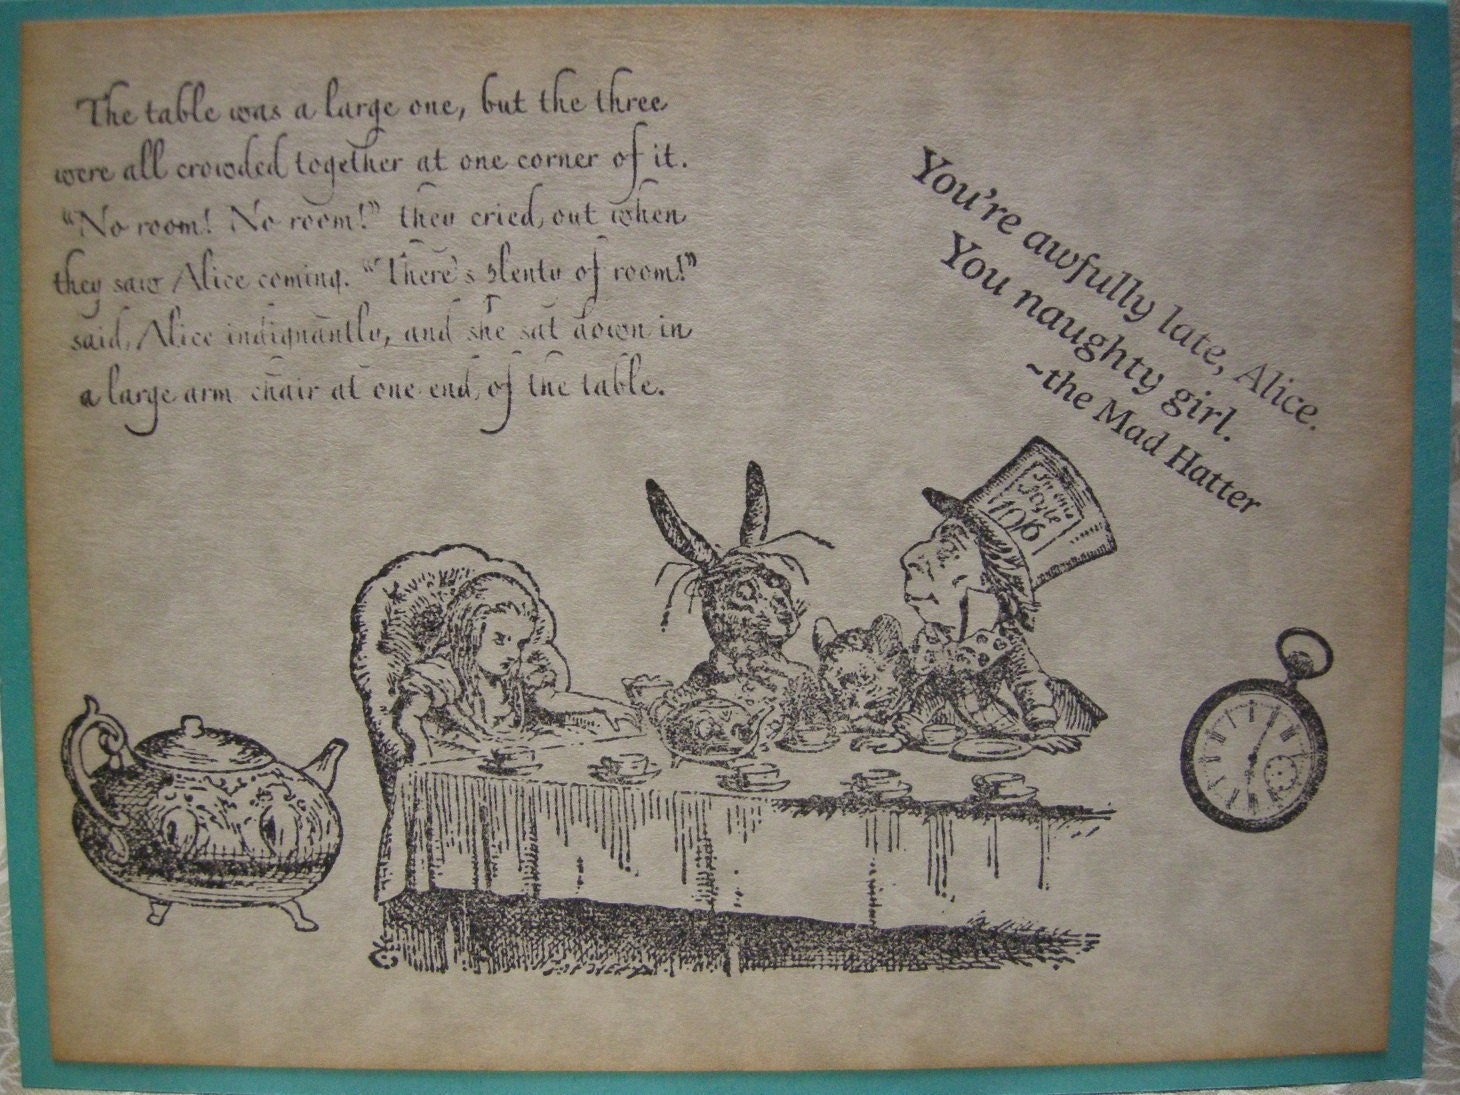 The table was a large one, but the three
were all crowded together at one corner of it.
"No room! No room!" they cried out when
they saw Alice coming. "There's plenty of room!"
said Alice indignantly, and she sat down in
a large arm chair at one end of the table.
You're awfully late, Alice.
You naughty girl.
~the Mad Hatter
In this
Style
10/6